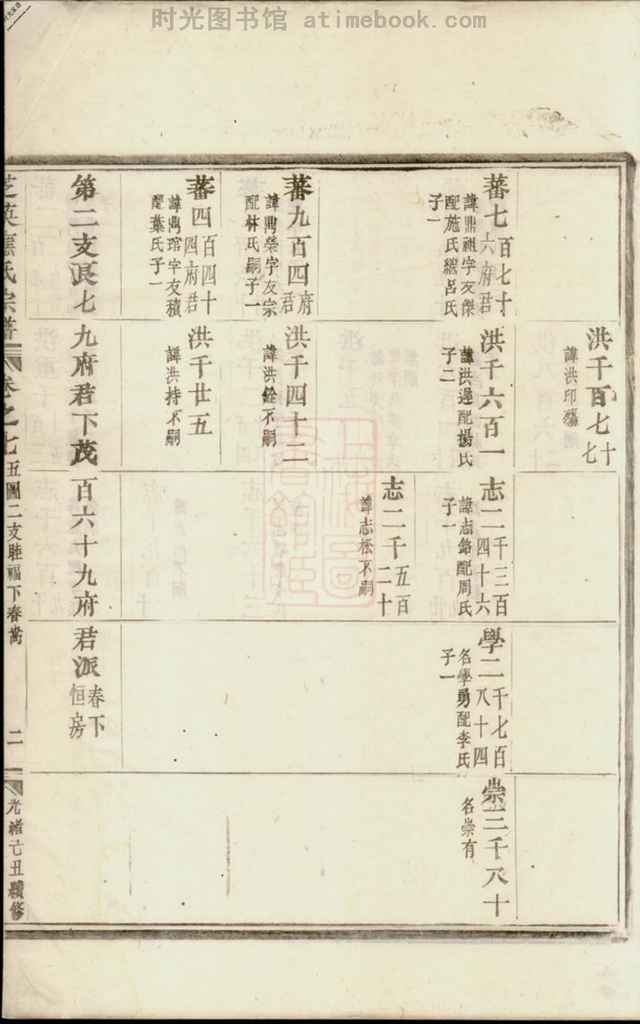 时光图书馆 - atimebook.com
洪千百七十七
諱洪印殤
蕃七百七十六府君
諱鼎祖字友傑
配施氏繼呂氏
子一
洪千六百一
諱洪邊配楊氏
子二
志二千三百四十六
諱志銘配周氏
子一
學二千七百八十四
名學勇配李氏
子一
崇三千八十
名崇有
志二千五百二十
諱志松不嗣
蕃九百四府君
諱鼎榮字友宗
配林氏嗣子一
洪千四十二
諱洪銓不嗣
蕃四百四十四府君
諱鼎琯字友積
配葉氏子一
洪千廿五
諱洪持不嗣
第二支長七九府君下茂百六十九府君派春下恒房
芝英應氏宗譜 卷之七 五圖二支睦福下春嵩 二 光緒丑續修